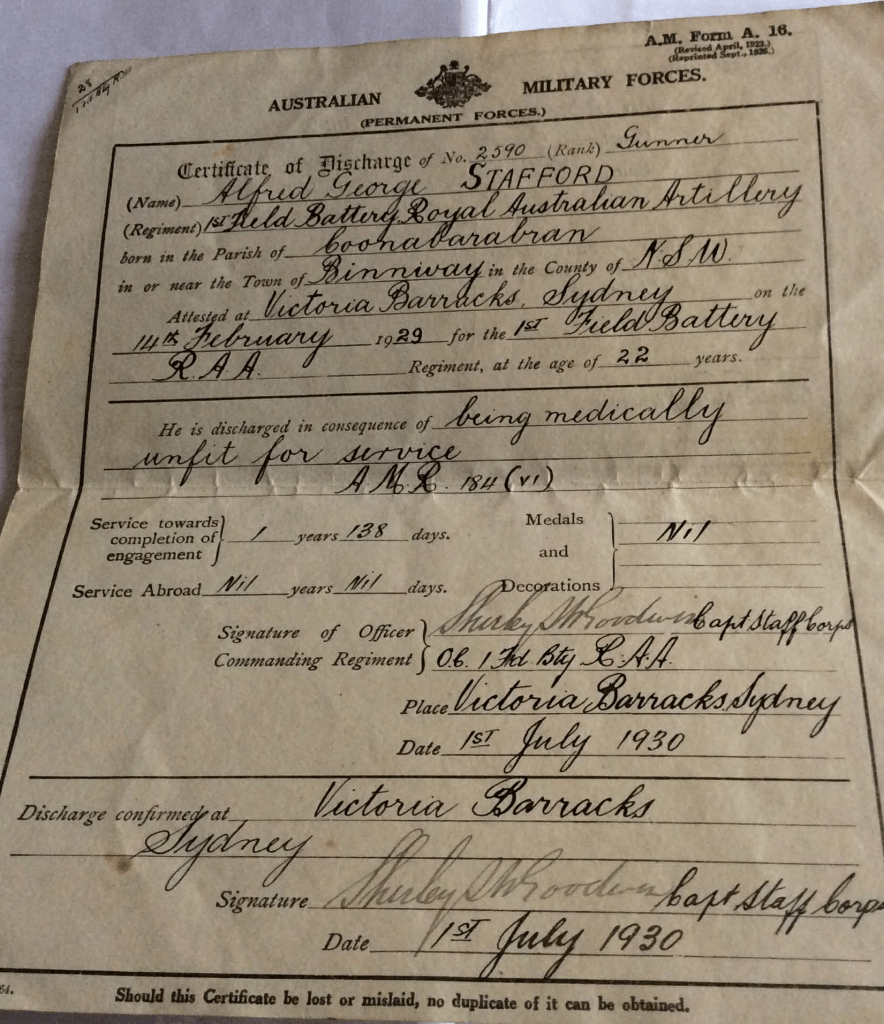 A.M. Form A. 16.
(Revised April, 1923.)
(Reprinted Sept., 1926.)
28
AUSTRALIAN MILITARY FORCES.
(PERMANENT FORCES.)
Certificate of Discharge of No. 2590 (Rank) Gunner
(Name) Alfred George STAFFORD
(Regiment) 1ST Field Battery Royal Australian Artillery
born in the Parish of Coonabarabran
in or near the Town of Binniway in the County of N.S.W.
Attested at Victoria Barracks, Sydney on the
14th February 1929 for the 1ST Field Battery
R.A.A. Regiment, at the age of 22 years.
He is discharged in consequence of being medically
unfit for service
A.M.R. 184 (VI)
Service towards completion of engagement } 1 years 138 days. Medals and Decorations } Nil
Service Abroad Nil years Nil days.
Signature of Officer Commanding Regiment } Shirley Goodwin Capt Staff Corps
O.C. 1 Fd. Bty R.A.A.
Place Victoria Barracks, Sydney
Date 1ST July 1930
Discharge confirmed at Victoria Barracks
Sydney
Signature Shirley Goodwin Capt Staff Corps
Date 1ST July 1930
64.
Should this Certificate be lost or mislaid, no duplicate of it can be obtained.